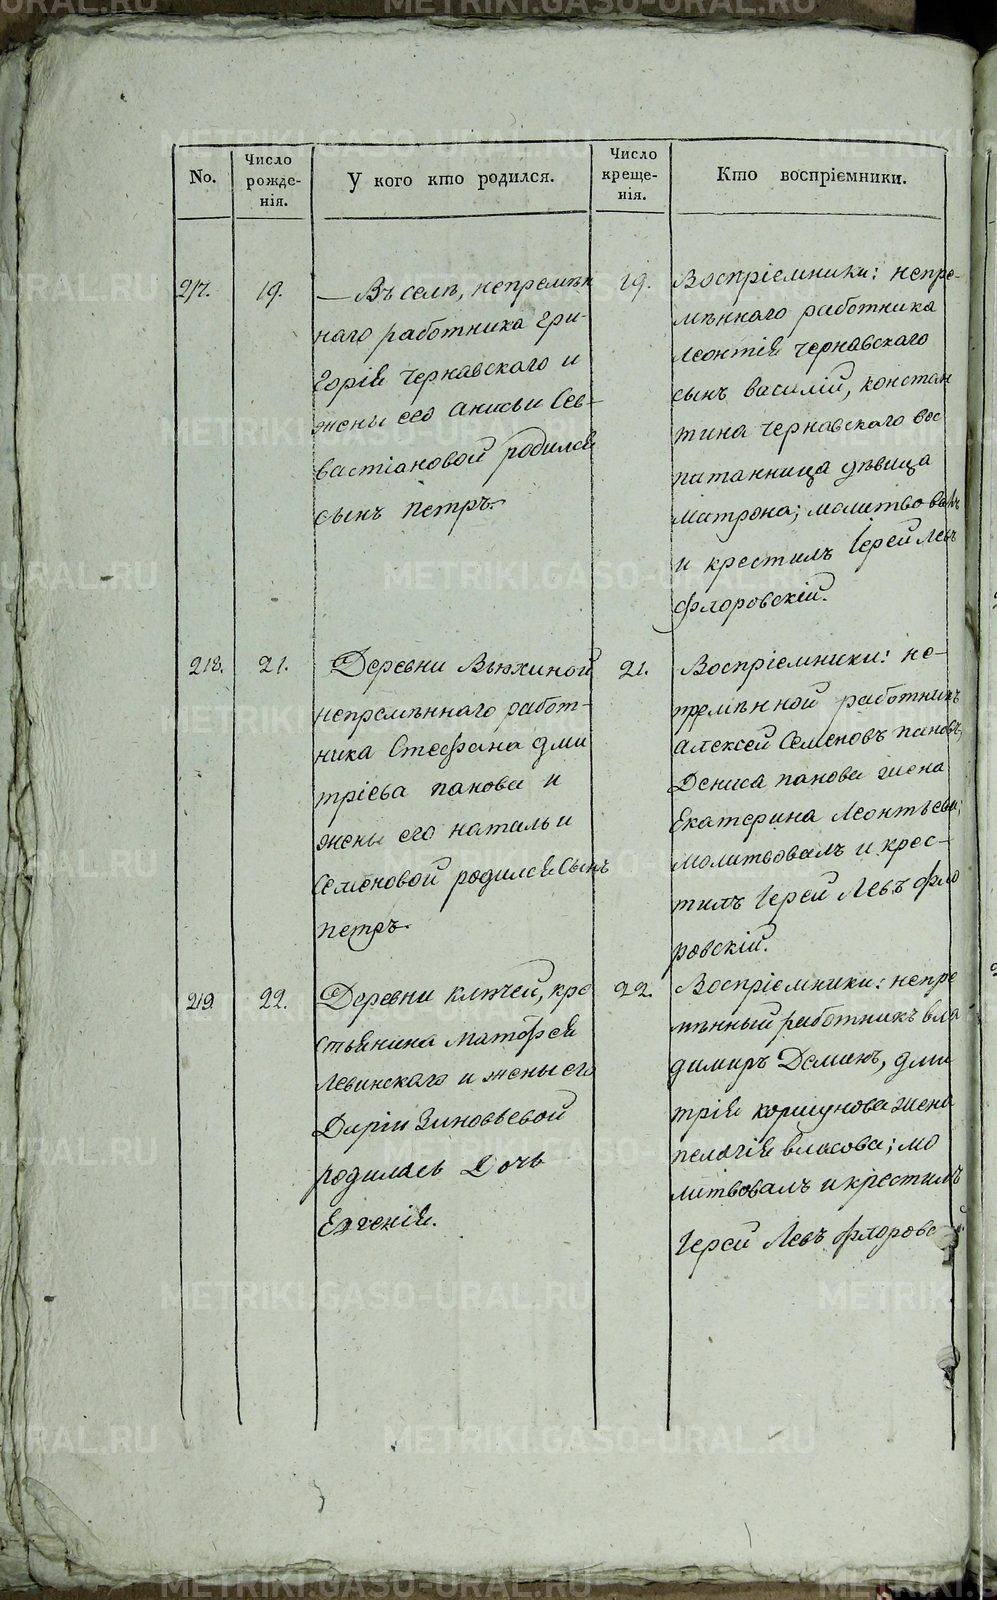 No.
Число рожде-нія.
У кого кто родился.
Число креще-нія.
Кто воспріемники.
217.
19.
— Въ селѣ, непремѣн
наго работника Гри-
горія Чернавскаго и
жены его Анисьи Сев-
вастіановой родился
сынъ Петръ.
19.
Воспріемники: непре-
мѣннаго работника
Леонтія Чернавскаго
сынъ Василій, Констан
тина Чернавскаго вос
питанница дѣвица
Матрона; молитвовалъ
и крестилъ Іерей Левъ
Флоровскій.
218.
21.
Деревни Вьюхиной
непремѣннаго работ-
ника Стефана Дми
тріева Панова и
жены его Натальи
Семеновой родился Сынъ
Петръ.
21.
Воспріемники: не-
премѣнной работникъ
Алексей Семеновъ Пановъ,
Дениса Панова жена
Екатерина Леонтьева;
молитвовалъ и крес-
тилъ Іерей Левъ Фло
ровскій.
219
22.
Деревни Ключей, кре
стьянина Матфея
Левинскаго и жены его
Даріи Зиновьевой
родилась Дочь
Евгенія.
22.
Воспріемники: непре
мѣнный работникъ Вла
димиръ Деминъ, Дми
трія Коршунова жена
Пелагія Власова; мо
литвовалъ и крестилъ
Іерей Левъ Флоровс
METRIKI.GASO-URAL.RU